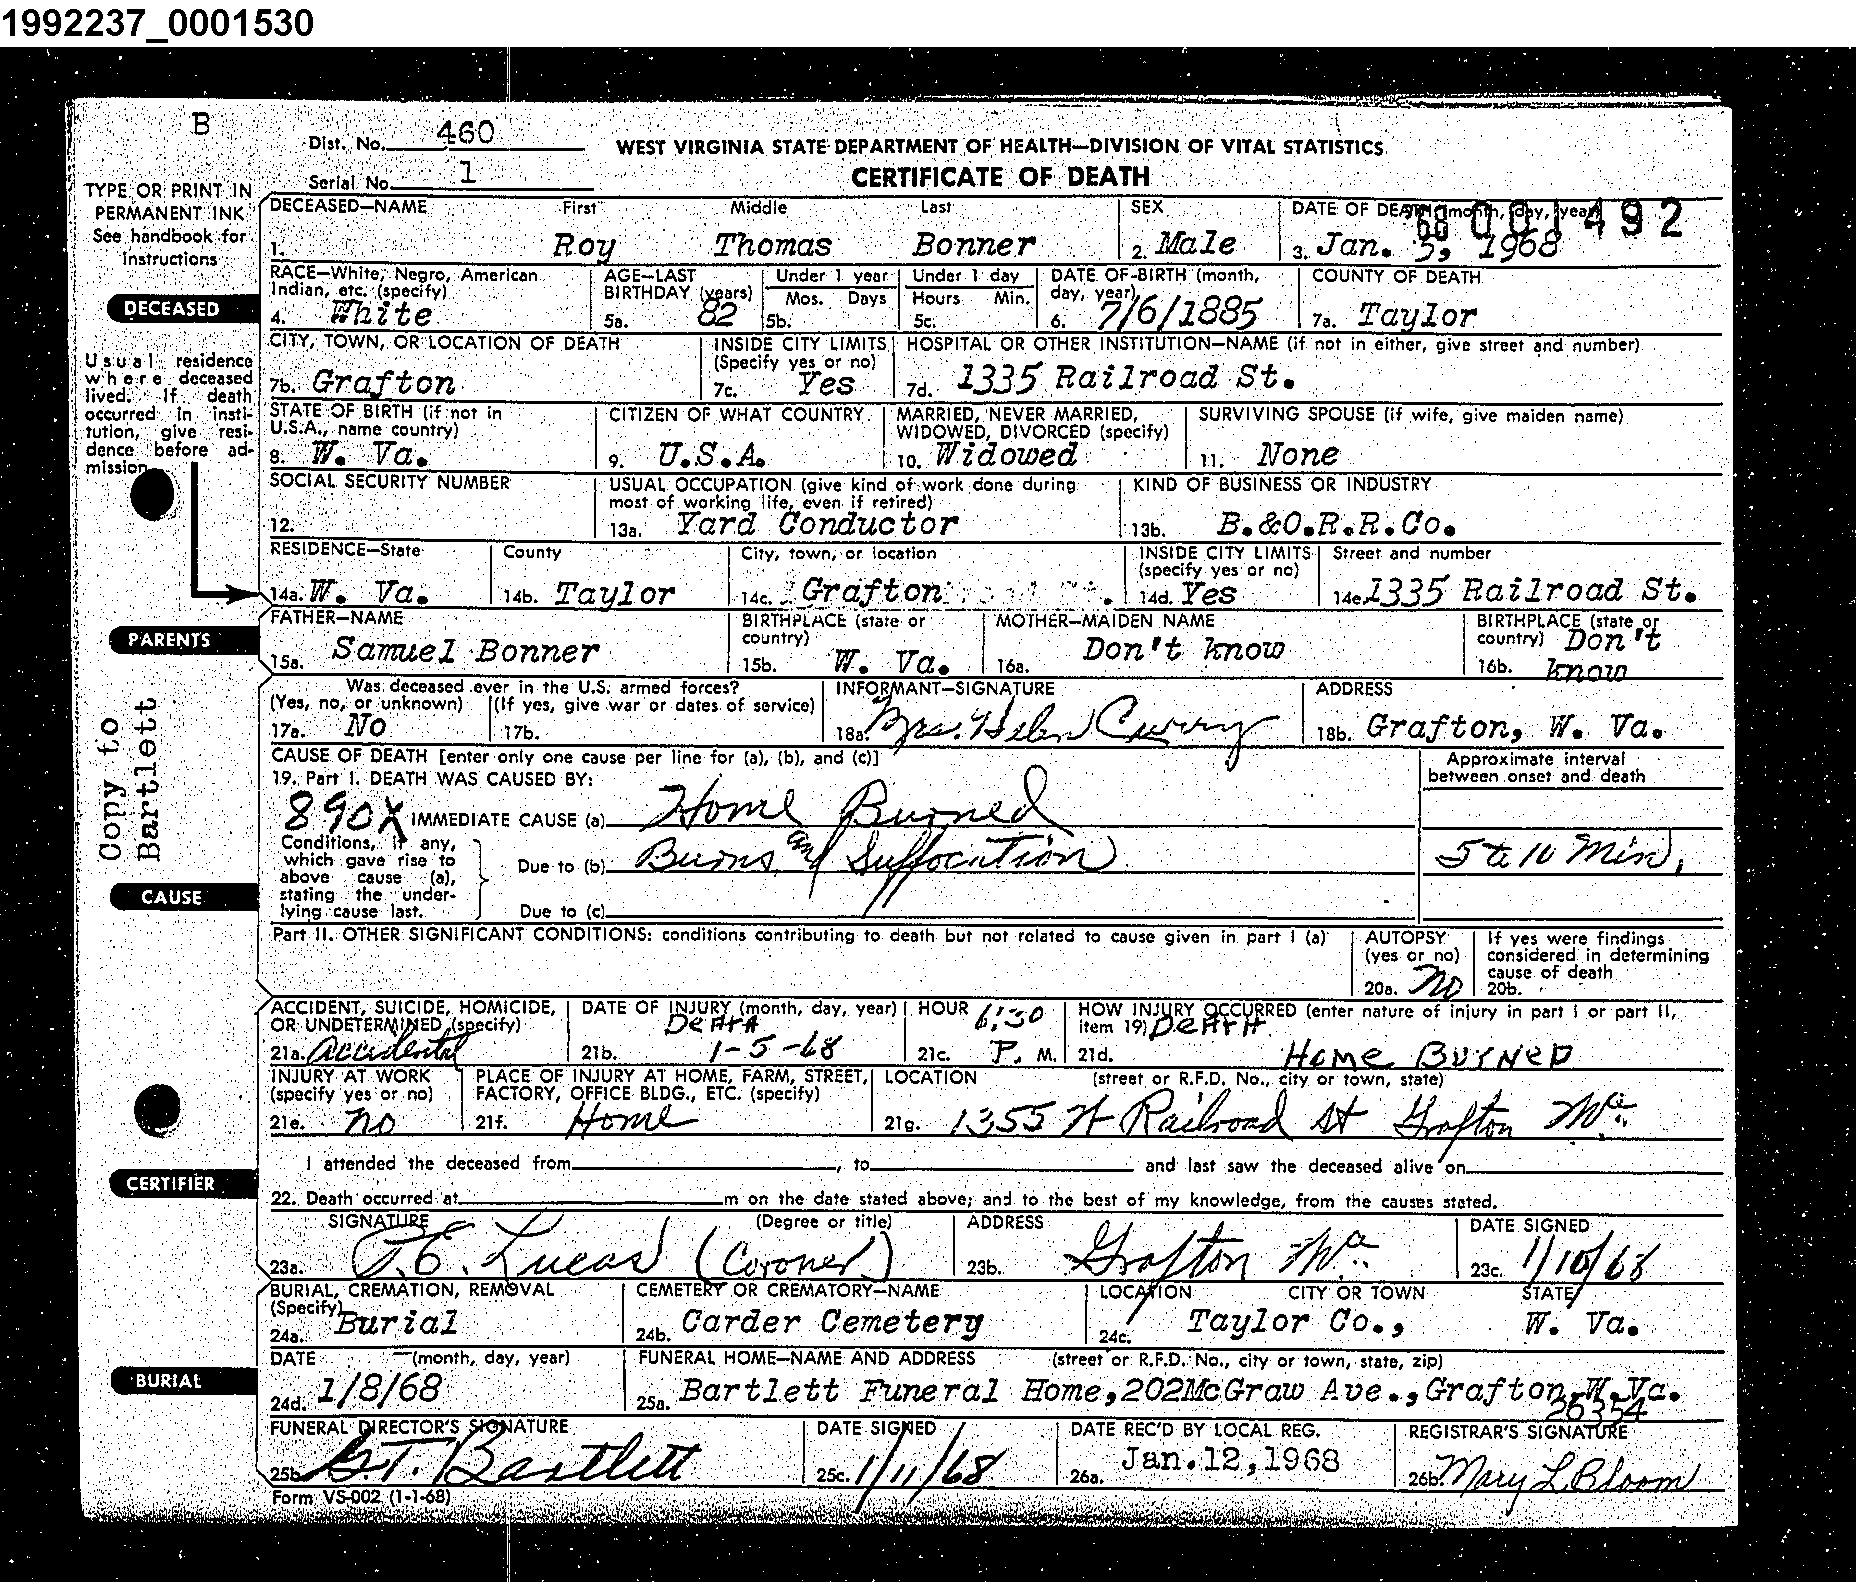 1992237_0001530
B
Dist. No. 460
WEST VIRGINIA STATE DEPARTMENT OF HEALTH—DIVISION OF VITAL STATISTICS
Serial No. 1
CERTIFICATE OF DEATH
TYPE OR PRINT IN
PERMANENT INK
See handbook for
Instructions
DECEASED—NAME First Middle Last SEX DATE OF DEATH (month, day, year)
001492
1. Roy Thomas Bonner 2. Male 3. Jan. 5, 1968
RACE—White, Negro, American Indian, etc. (specify)
4. White
AGE—LAST BIRTHDAY (years)
5a. 82
Under 1 year
Mos. Days
5b.
Under 1 day
Hours Min.
5c.
DATE OF BIRTH (month, day, year)
6. 7/6/1885
COUNTY OF DEATH
7a. Taylor
DECEASED
CITY, TOWN, OR LOCATION OF DEATH
7b. Grafton
INSIDE CITY LIMITS (Specify yes or no)
7c. Yes
HOSPITAL OR OTHER INSTITUTION—NAME (if not in either, give street and number)
7d. 1335 Railroad St.
Usual residence
where deceased
lived. If death
occurred in insti-
tution, give resi-
dence before ad-
mission
STATE OF BIRTH (if not in U.S.A., name country)
8. W. Va.
CITIZEN OF WHAT COUNTRY
9. U.S.A.
MARRIED, NEVER MARRIED, WIDOWED, DIVORCED (specify)
10. Widowed
SURVIVING SPOUSE (if wife, give maiden name)
11. None
SOCIAL SECURITY NUMBER
12.
USUAL OCCUPATION (give kind of work done during most of working life, even if retired)
13a. Yard Conductor
KIND OF BUSINESS OR INDUSTRY
13b. B.&O.R.R.Co.
RESIDENCE—State
14a. W. Va.
County
14b. Taylor
City, town, or location
14c. Grafton
INSIDE CITY LIMITS (specify yes or no)
14d. Yes
Street and number
14e. 1335 Railroad St.
PARENTS
FATHER—NAME
15a. Samuel Bonner
BIRTHPLACE (state or country)
15b. W. Va.
MOTHER—MAIDEN NAME
16a. Don't know
BIRTHPLACE (state or country)
16b. Don't know
Was deceased ever in the U.S. armed forces?
(Yes, no, or unknown) (If yes, give war or dates of service)
17a. No 17b.
INFORMANT—SIGNATURE
18a. Mrs. Helen Curry
ADDRESS
18b. Grafton, W. Va.
Copy to
Bartlett
CAUSE OF DEATH [enter only one cause per line for (a), (b), and (c)]
Approximate interval between onset and death
19. Part I. DEATH WAS CAUSED BY:
890X IMMEDIATE CAUSE (a) Home Burned
Conditions, if any,
which gave rise to
above cause (a),
stating the under-
lying cause last.
Due to (b) Burns and Suffocution 5 to 10 Min.
Due to (c)
CAUSE
Part II. OTHER SIGNIFICANT CONDITIONS: conditions contributing to death but not related to cause given in part I (a)
AUTOPSY (yes or no)
20a. no
If yes were findings considered in determining cause of death
20b.
ACCIDENT, SUICIDE, HOMICIDE, OR UNDETERMINED (specify)
21a. Accidental
DATE OF INJURY (month, day, year)
DeAtH
21b. 1-5-68
HOUR 6:30
21c. P. M.
HOW INJURY OCCURRED (enter nature of injury in part I or part II, item 19) DeAtH
21d. Home BURNeD
INJURY AT WORK (specify yes or no)
21e. no
PLACE OF INJURY AT HOME, FARM, STREET, FACTORY, OFFICE BLDG., ETC. (specify)
21f. Home
LOCATION (street or R.F.D. No., city or town, state)
21g. 1355 W Railroad St Grafton Wva.
I attended the deceased from , to and last saw the deceased alive on
CERTIFIER
22. Death occurred at m on the date stated above; and to the best of my knowledge, from the causes stated.
SIGNATURE (Degree or title)
23a. P.E. Lucas (Coroner)
ADDRESS
23b. Grafton Wva.
DATE SIGNED
23c. 1/10/68
BURIAL, CREMATION, REMOVAL (Specify)
24a. Burial
CEMETERY OR CREMATORY—NAME
24b. Carder Cemetery
LOCATION CITY OR TOWN STATE
24c. Taylor Co., W. Va.
BURIAL
DATE (month, day, year)
24d. 1/8/68
FUNERAL HOME—NAME AND ADDRESS (street or R.F.D. No., city or town, state, zip)
25a. Bartlett Funeral Home,202McGraw Ave.,Grafton,W.Va.
26354
FUNERAL DIRECTOR'S SIGNATURE
25b. G.T. Bartlett
DATE SIGNED
25c. 1/11/68
DATE REC'D BY LOCAL REG.
26a. Jan.12,1968
REGISTRAR'S SIGNATURE
26b. Mary L. Bloom
Form VS-002 (1-1-68)